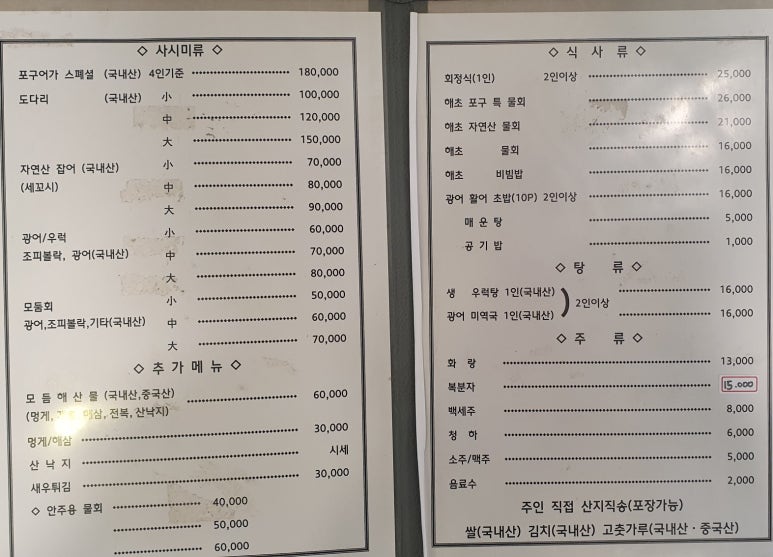 ◇ 사시미류 ◇
포구어가 스페셜 (국내산) 4인기준 180,000
도다리 (국내산) 小 100,000
中 120,000
大 150,000
자연산 잡어 (국내산) 小 70,000
(세꼬시) 中 80,000
大 90,000
광어/우럭 小 60,000
조피볼락, 광어(국내산) 中 70,000
大 80,000
모둠회 小 50,000
광어,조피볼락,기타(국내산) 中 60,000
大 70,000
◇ 추가메뉴 ◇
모 듬 해 산 물 (국내산,중국산) 60,000
(멍게, 해삼, 전복, 산낙지)
멍게/해삼 30,000
산 낙 지 시세
새우튀김 30,000
◇ 안주용 물회 40,000
50,000
60,000
◇ 식 사 류 ◇
회정식(1인) 2인이상 25,000
해초 포구 특 물회 26,000
해초 자연산 물회 21,000
해초 물회 16,000
해초 비빔밥 16,000
광어 활어 초밥(10P) 2인이상 16,000
매 운 탕 5,000
공 기 밥 1,000
◇ 탕 류 ◇
생 우럭탕 1인(국내산) 16,000
2인이상
광어 미역국 1인(국내산) 16,000
◇ 주 류 ◇
화 랑 13,000
복분자 15.000
백세주 8,000
청 하 6,000
소주/맥주 5,000
음료수 2,000
주인 직접 산지직송(포장가능)
쌀(국내산) 김치(국내산) 고춧가루(국내산 · 중국산)